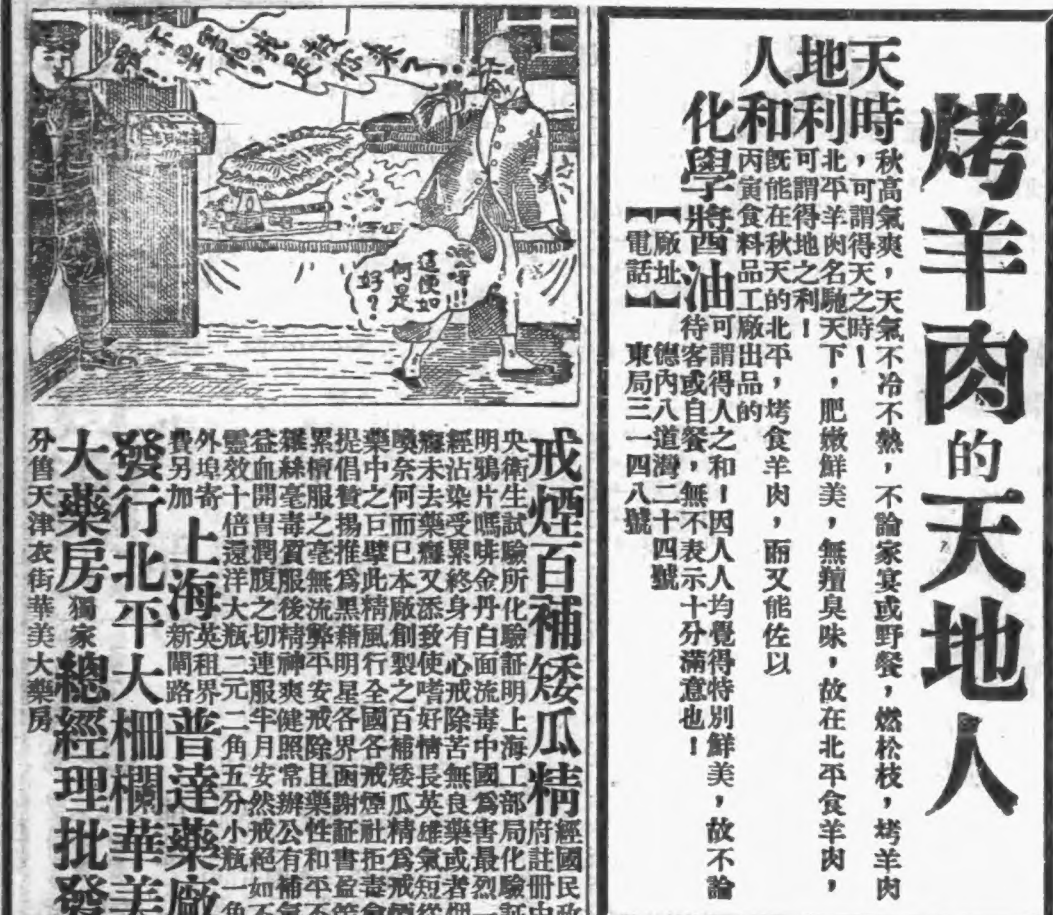 烤羊肉的天地人
天時秋高氣爽，天氣不冷不熱，不論家宴或野餐，燃松枝，烤羊肉
，可謂得天之時！
地利北平羊肉名馳天下，肥嫩鮮美，無羶臭味，故在北平食羊肉，
可謂得地之利！
人和旣能在秋天的北平，烤食羊肉，而又能佐以
丙寅食料品工廠出品的
化學醬油可謂得人之和！因人人均覺得特別鮮美，故不論
待客或自餐，無不表示十分滿意也！
【廠址】德內八道灣二十四號
【電話】東局三一四八號
不是客，我是救你來了！
哎呀！！！這便如何是好？
戒煙百補矮瓜精經國民政
府註冊中
央衛生試驗所化驗証明上海工部局化驗証
明鴉片嗎啡金丹白面流毒中國爲害最烈一
經沾染受累終身有心戒除苦無良藥或者烟
癮未去藥癮又添致使嗜好情長英雄氣短從
喚奈何而已本廠創製之百補矮瓜精爲戒煙
藥中之巨擘此精風行全國各戒煙社拒毒會
提倡贊揚推爲黑藉明星各界函謝証書盈筒
累櫝服之毫無流弊平安戒除且藥性和平不
雜絲毫毒質服後精神爽健照常辦公有補氣
益血開胃潤腹之切連服半月安然戒絕如不
靈效十倍還洋大瓶二元二角五分小瓶一角
外埠寄
費另加
上海英租界
新閘路
普達藥廠
發行北平大柵欄華美
大藥房獨家總經理批發
分售天津衣街華美大藥房